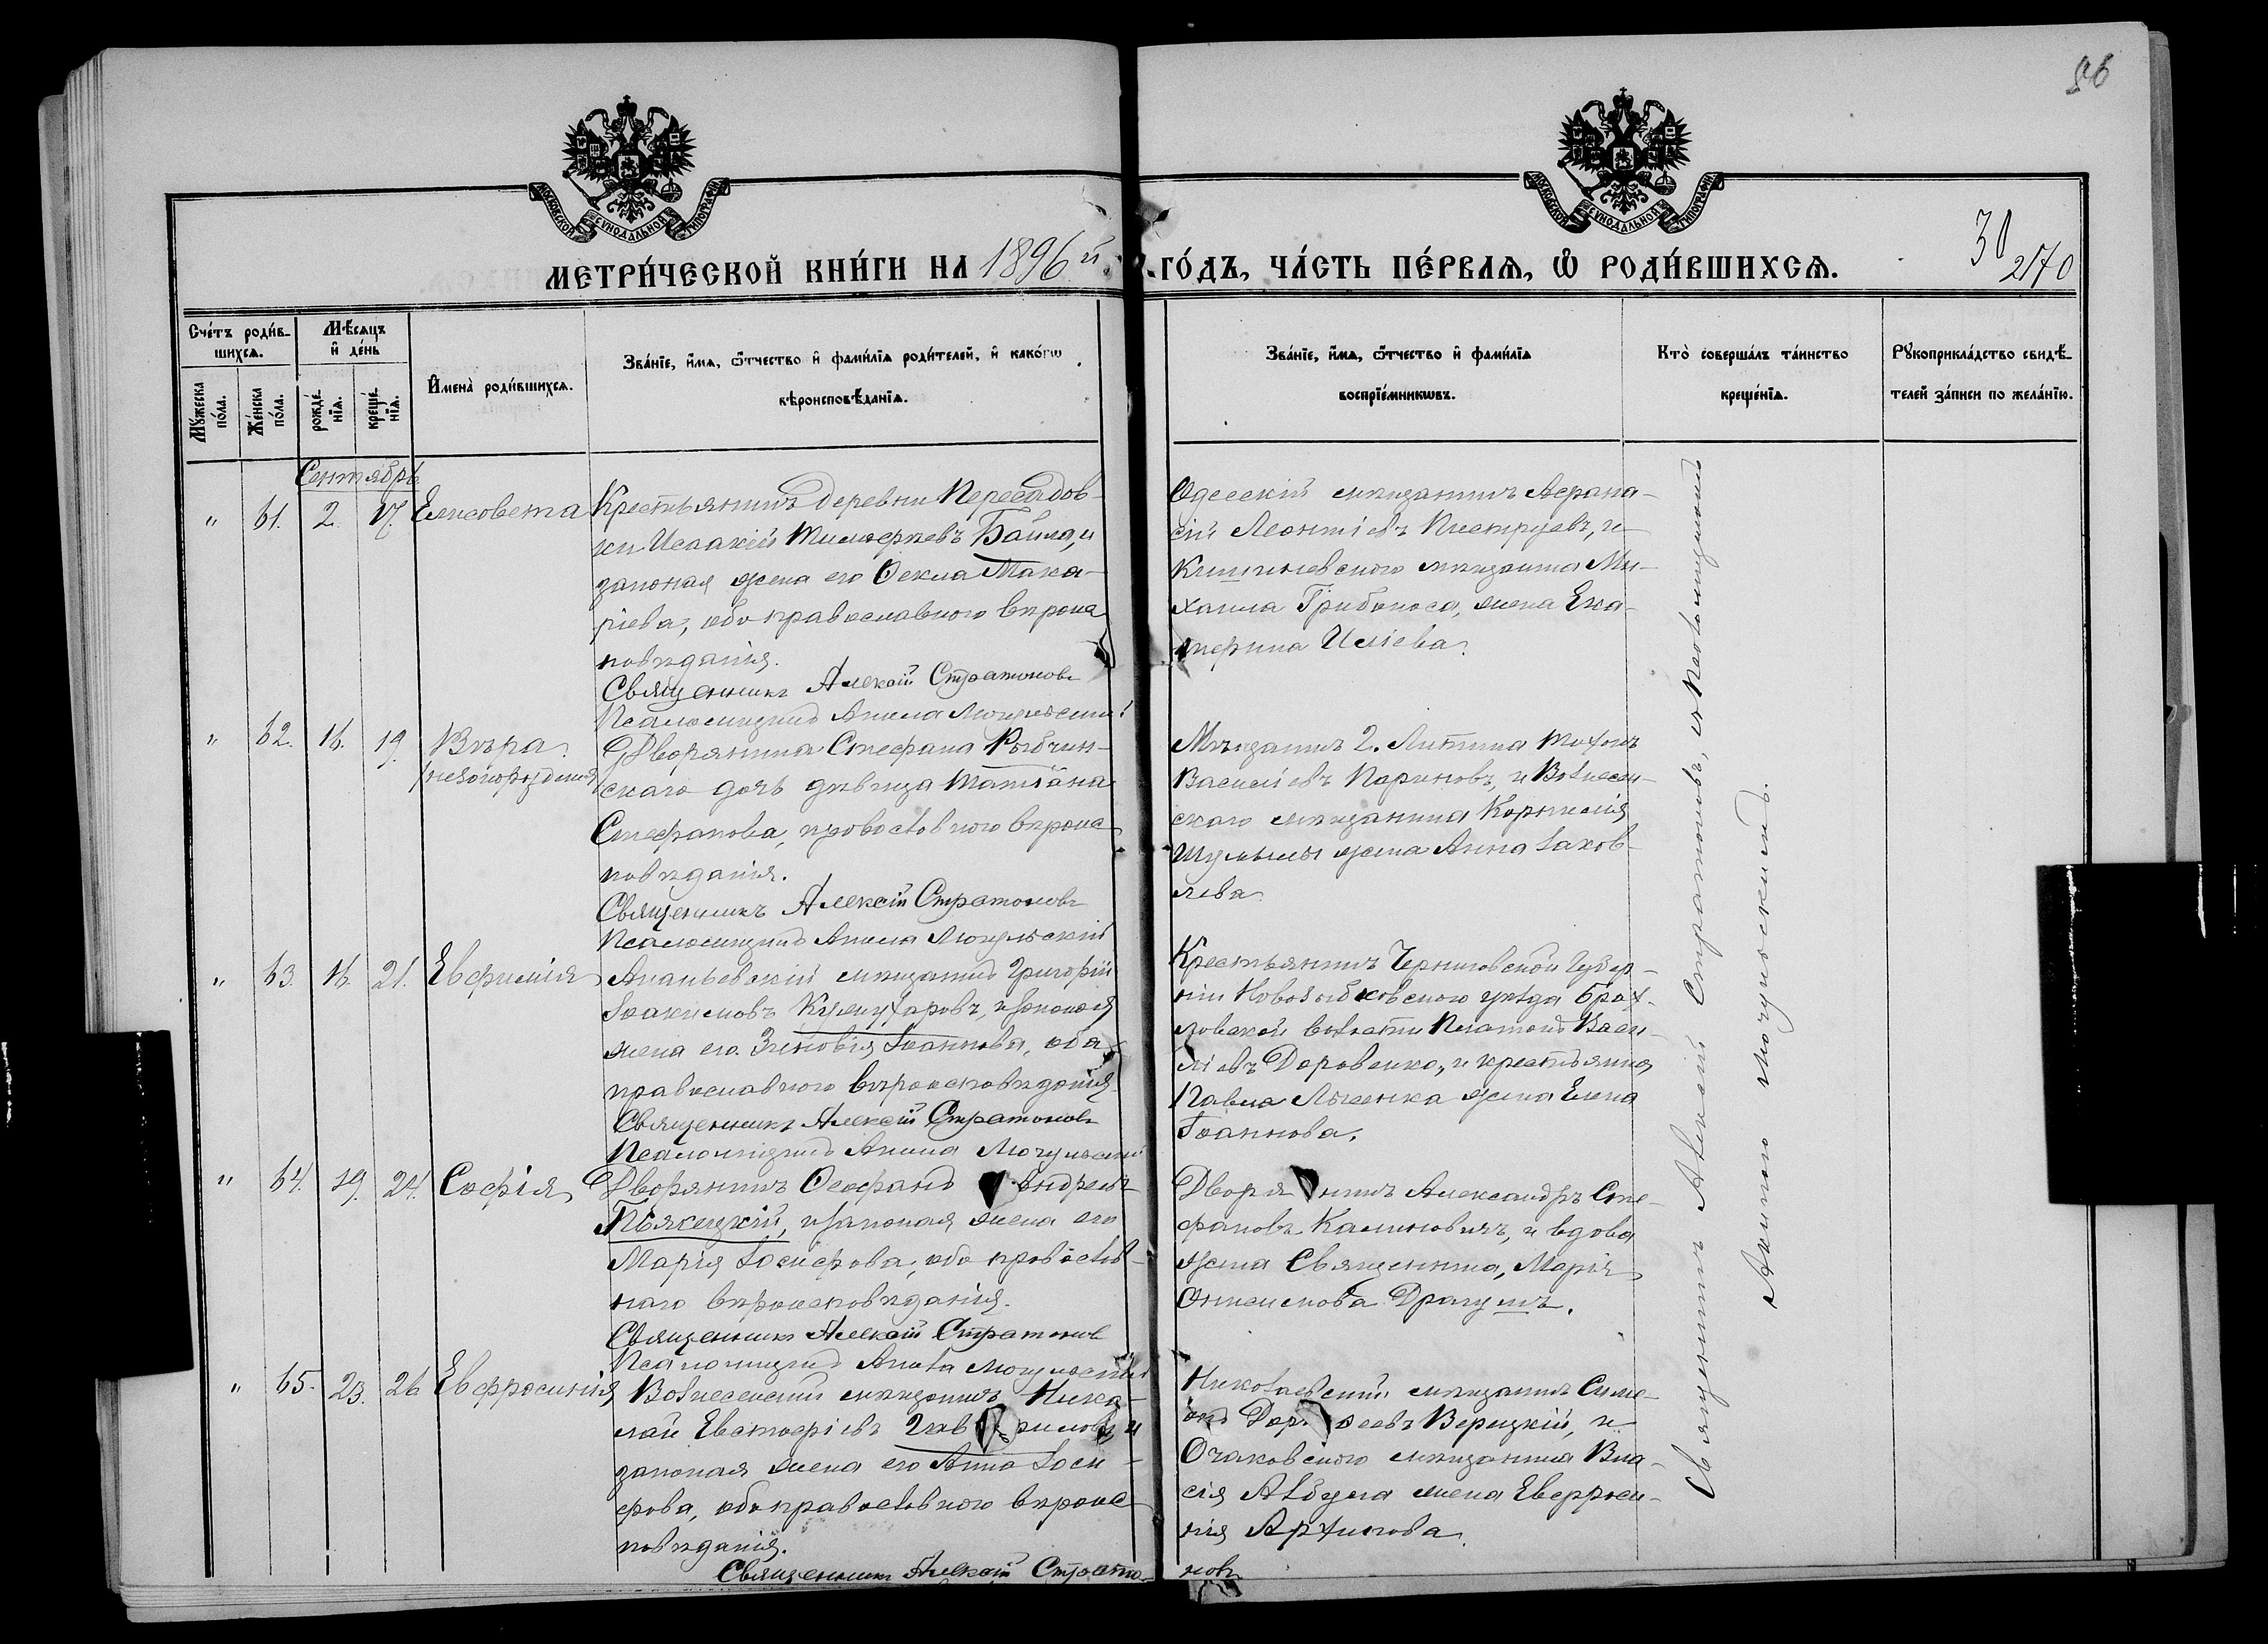 86
МОСКОВСКОЙ СУНОДАЛЬНОЙ ТИПОГРАФІИ
МОСКОВСКОЙ СУНОДАЛЬНОЙ ТИПОГРАФІИ
МЕТРИ́ЧЕСКОЙ КНИ́ГИ НА 1896й ГО́ДЪ, ЧА́СТЬ ПЕ́РВАѦ, Ѽ РОДИ́ВШИХСѦ.
30
2170
Счéтъ роди́в-
шихсѧ.
Мѣ́сѧцъ
и҆ дéнь
Мꙋ́жеска
по́ла.
Жéнска
по́ла.
рождé-
нїѧ.
крещé-
нїѧ.
И҆менà роди́вшихсѧ.
Звáнїе, и҆́мѧ, ѻ҆́тчество и҆ фами́лїѧ роди́телей, и҆ какóгѡ
вѣроисповѣ́данїѧ.
Звáнїе, и҆́мѧ, ѻ҆́тчество и҆ фами́лїѧ
воспрїéмникѡвъ.
Кто̀ совершáлъ тáинство
крещéнїѧ.
Рꙋкоприклáдство свидѣ́-
телей зáписи по желáнїю.
Сентябрь
" 61. 2. 17. Елисовета
Крестьянинъ деревни Пересадов-
ки Исаакій Тимофеевъ Байла, и
законая жена его Ѳекла Мака-
ріева, оба православного вѣроис
повѣданія.
Священникъ Алексій Стратоновъ
Псаломщикъ Акила Могульскій
Одесскій мѣщанинъ Афана-
сій Леонтіевъ Пиструевъ, и
Кишиневского мѣщанина Ми-
хаила Грибоноса, жена Ека-
терина Иліева.
" 62. 16. 19. Вѣра
(незаконорожденная)
Дворянина Стефана Рыбчин-
скаго дочь дѣвица Татіана
Стефанова, православного вѣроис
повѣданія.
Священникъ Алексій Стратоновъ
Псаломщикъ Акила Могульскій
Мѣщанинъ г. Литина Тихонъ
Василіевъ Париновъ, и Вознесен-
скаго мѣщанина Корнилія
Шульги жена Анна Іаков-
лева
" 63. 16. 21. Евфимія
Ананьевскій мѣщанинъ Григорій
Іоакимовъ Кушнаровъ, и законая
жена его Зиновія Іоаннова, оба
православного вѣроисповѣданія.
Священникъ Алексій Стратоновъ
Псаломщикъ Акила Могульскій
Крестьянинъ Черниговской Губер-
ніи Новозыбковского уѣзда Брах-
ловской волости Платонъ Васи-
ліевъ Доровенко, и крестьянина
Павла Лысенка жена Елена
Іоаннова.
" 64. 19. 24. Софія
Дворянинъ Ѳеофанъ Андреевъ
Пьяксецкій, и законая жена его
Марія Іосифова, оба православ-
наго вѣроисповѣданія.
Священникъ Алексій Стратоновъ
Псаломщикъ Акила Могульскій
Дворянинъ Александръ Сте-
фановъ Калиновичъ, и вдова
жена Священника, Марія
Онисимова Драгушъ.
" 65. 23. 26. Евфросинія
Вознесенскій мѣщанинъ Нико-
лай Евстафіевъ Гавриловъ, и
законая жена его Анна Іоси-
фова, оба православного вѣроис
повѣданія.
Священникъ Алексій Страто-
новъ
Николаевскій мѣщанинъ Симе-
онъ Дорофеевъ Верецкій, и
Очаковского мѣщанина Вла-
сія Албула жена Евфроси-
нія Архипова.
Священникъ Алексій Стратоновъ, съ Псаломщикомъ
Акилою Могульскимъ.